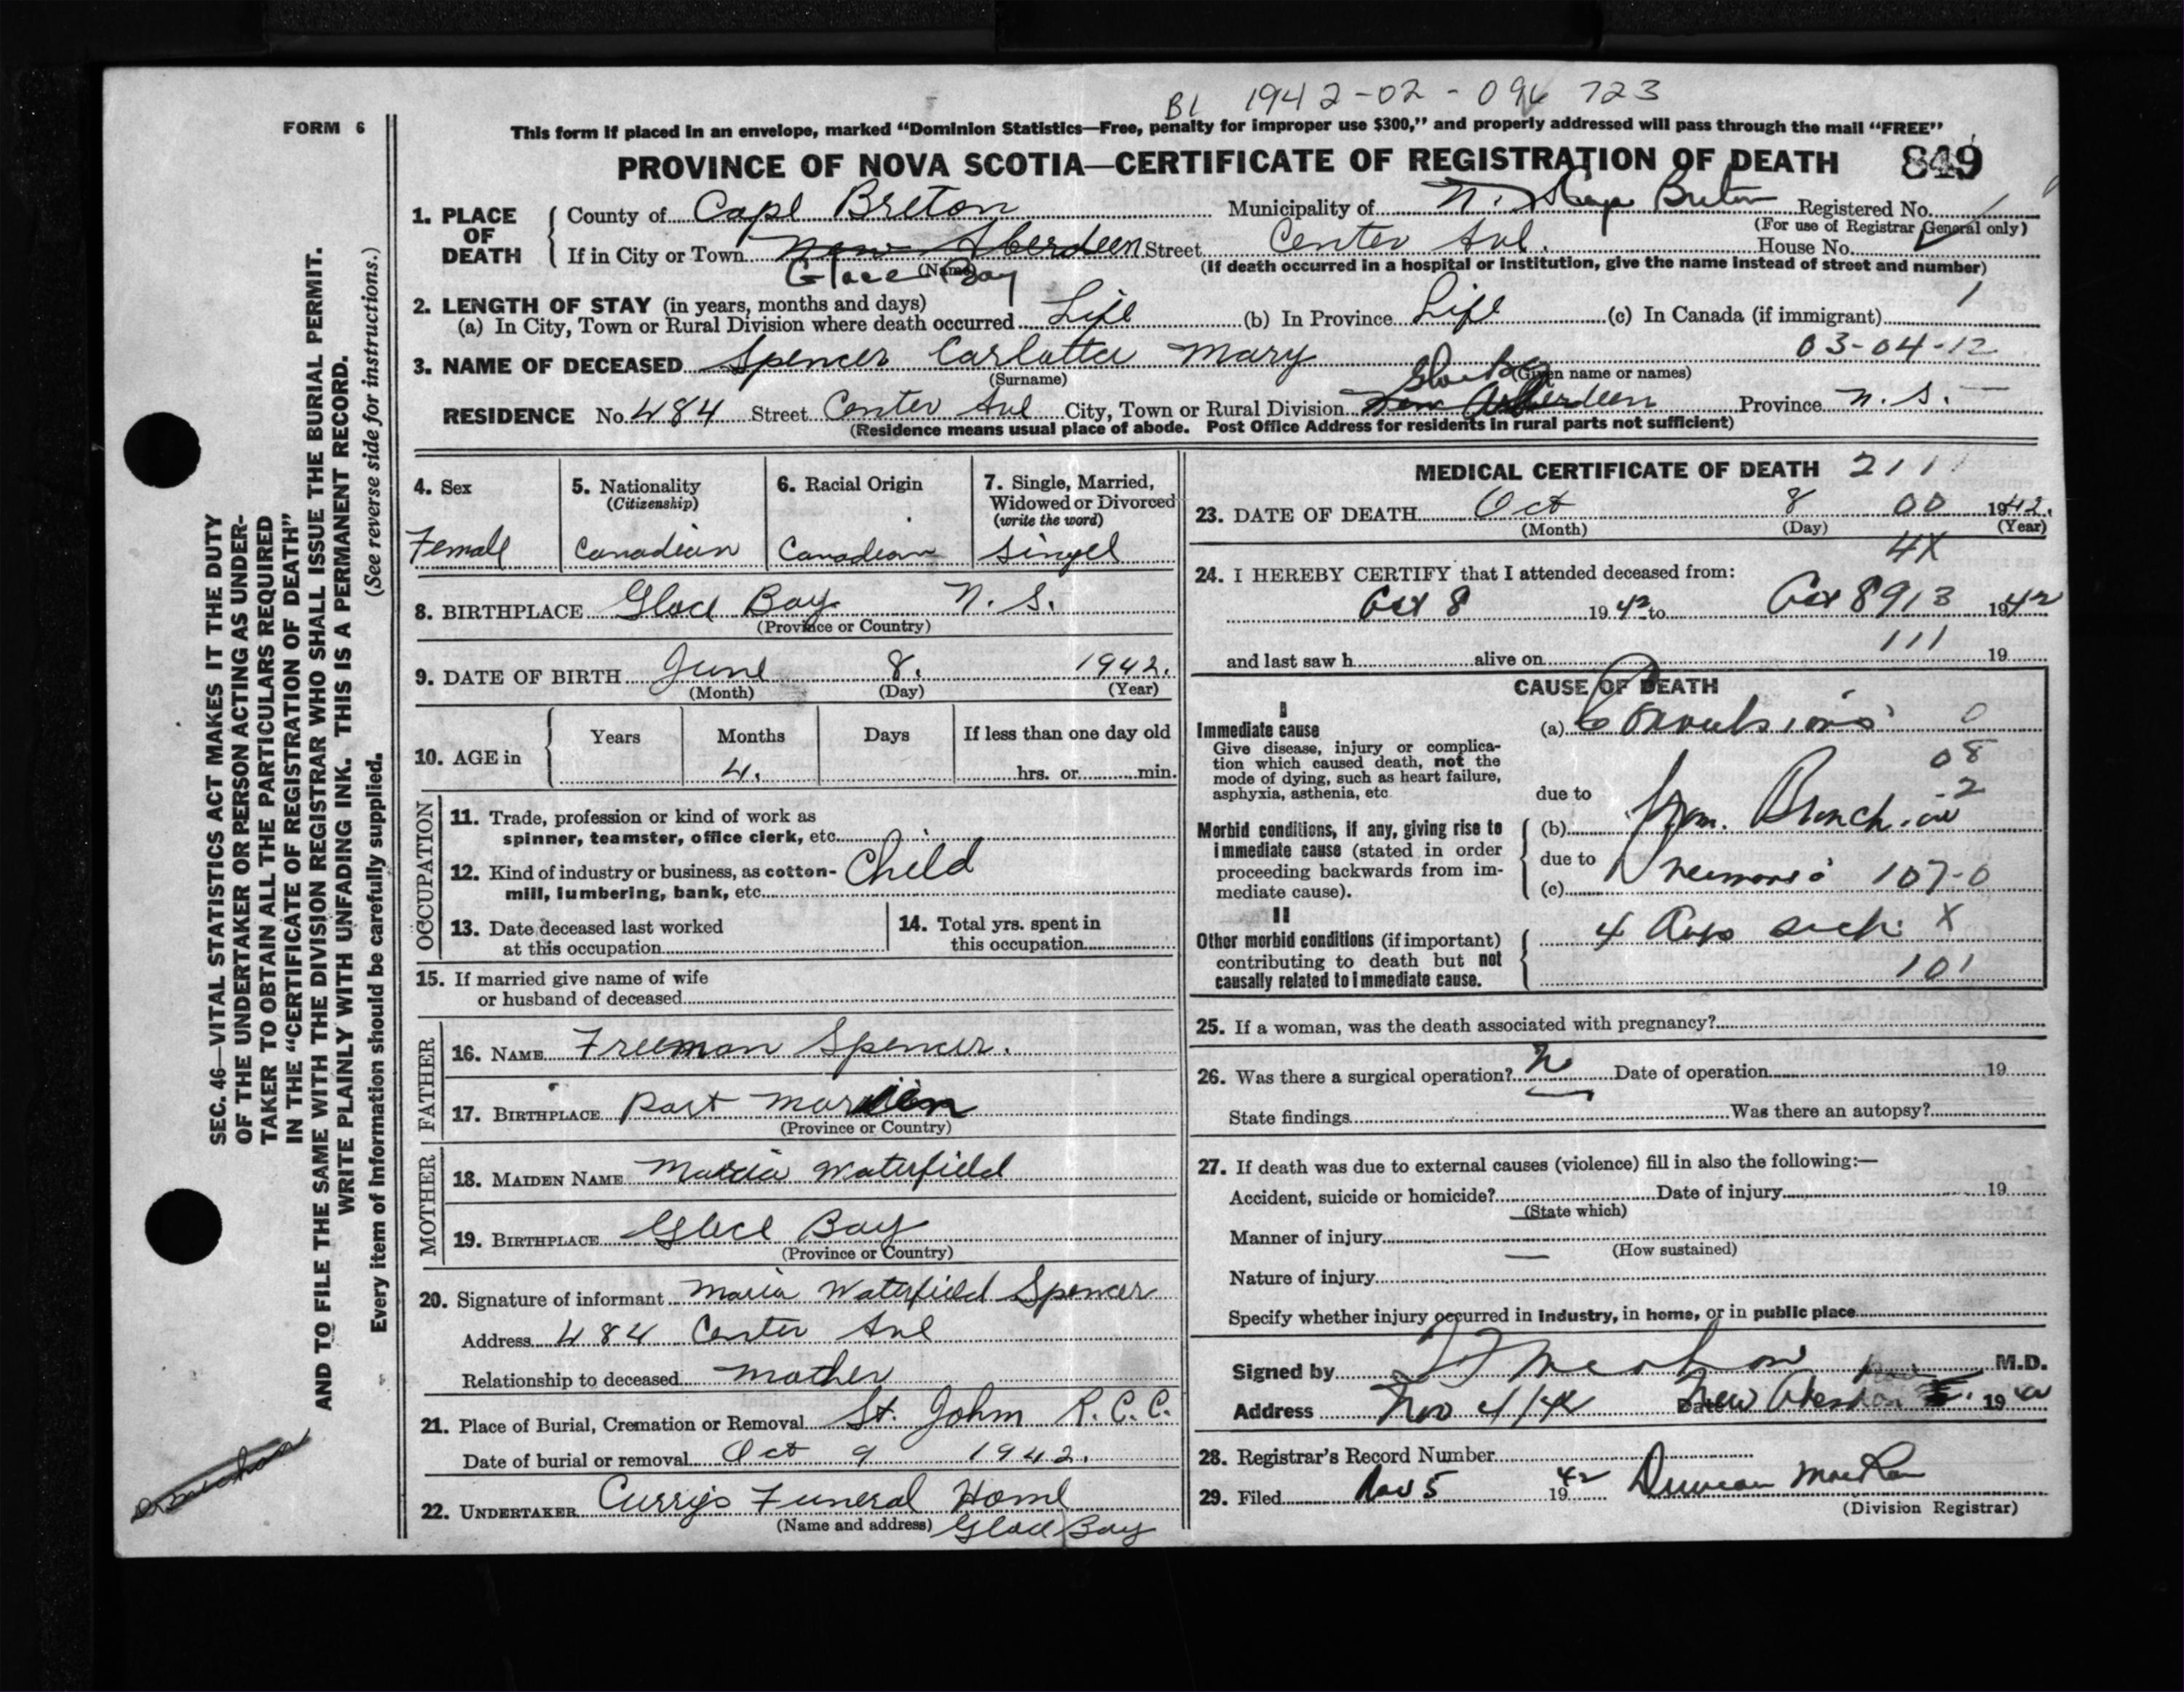 BL 1942-02-096723
FORM 6
This form if placed in an envelope, marked "Dominion Statistics—Free, penalty for improper use $300," and properly addressed will pass through the mail "FREE"
PROVINCE OF NOVA SCOTIA—CERTIFICATE OF REGISTRATION OF DEATH 849
1. PLACE OF DEATH
County of Cape Breton Municipality of Cape Breton Registered No.
(For use of Registrar General only)
If in City or Town New Aberdeen Street Center Ave. House No.
(Name)
Glace Bay
(If death occurred in a hospital or institution, give the name instead of street and number)
2. LENGTH OF STAY (in years, months and days)
(a) In City, Town or Rural Division where death occurred Life (b) In Province Life (c) In Canada (if immigrant) 1
03-04-12
3. NAME OF DECEASED Spencer Carlotta Mary
(Surname) (Given name or names)
RESIDENCE No. 484 Street Center Ave City, Town or Rural Division New Aberdeen Province N. S.
(Residence means usual place of abode. Post Office Address for residents in rural parts not sufficient)
4. Sex
Female
5. Nationality
(Citizenship)
Canadian
6. Racial Origin
Canadian
7. Single, Married,
Widowed or Divorced
(write the word)
Singel
8. BIRTHPLACE Glace Bay N. S.
(Province or Country)
9. DATE OF BIRTH June 8. 1942.
(Month) (Day) (Year)
10. AGE in
Years Months Days If less than one day old
4. hrs. or min.
OCCUPATION
11. Trade, profession or kind of work as
spinner, teamster, office clerk, etc.
12. Kind of industry or business, as cotton-
mill, lumbering, bank, etc. Child
13. Date deceased last worked
at this occupation
14. Total yrs. spent in
this occupation
15. If married give name of wife
or husband of deceased
FATHER
16. NAME Freeman Spencer.
17. BIRTHPLACE Port Morien
(Province or Country)
MOTHER
18. MAIDEN NAME Maria Waterfield
19. BIRTHPLACE Glace Bay
(Province or Country)
20. Signature of informant Maria Waterfield Spencer
Address 484 Center Ave
Relationship to deceased mother
21. Place of Burial, Cremation or Removal St. John R.C.C.
Date of burial or removal Oct 9 1942.
22. UNDERTAKER Curry's Funeral Home
(Name and address) Glace Bay
MEDICAL CERTIFICATE OF DEATH 211
23. DATE OF DEATH Oct 8 00 1942.
(Month) (Day) (Year)
4X
24. I HEREBY CERTIFY that I attended deceased from:
Oct 8 1942 to Oct 8 913 1942
111
and last saw h alive on 19
CAUSE OF DEATH
I
Immediate cause
Give disease, injury or complica-
tion which caused death, not the
mode of dying, such as heart failure,
asphyxia, asthenia, etc.
(a) Convulsions 0
08
due to 2
Morbid conditions, if any, giving rise to
immediate cause (stated in order
proceeding backwards from im-
mediate cause).
(b) from. Bronchial
due to
(c) Pneumonia 107-0
II
Other morbid conditions (if important)
contributing to death but not
causally related to immediate cause.
4 days sick X
101
25. If a woman, was the death associated with pregnancy?
26. Was there a surgical operation? N Date of operation 19
State findings Was there an autopsy?
27. If death was due to external causes (violence) fill in also the following:—
Accident, suicide or homicide? Date of injury 19
(State which)
Manner of injury
(How sustained)
Nature of injury
Specify whether injury occurred in industry, in home, or in public place
Signed by M.D.
Address Nov 4/42 Date New Aberdeen 19
28. Registrar's Record Number
29. Filed Nov 5 1942 Duncan MacRae
(Division Registrar)
SEC. 46—VITAL STATISTICS ACT MAKES IT THE DUTY
OF THE UNDERTAKER OR PERSON ACTING AS UNDER-
TAKER TO OBTAIN ALL THE PARTICULARS REQUIRED
IN THE "CERTIFICATE OF REGISTRATION OF DEATH"
AND TO FILE THE SAME WITH THE DIVISION REGISTRAR WHO SHALL ISSUE THE BURIAL PERMIT.
WRITE PLAINLY WITH UNFADING INK. THIS IS A PERMANENT RECORD.
Every item of information should be carefully supplied. (See reverse side for instructions.)